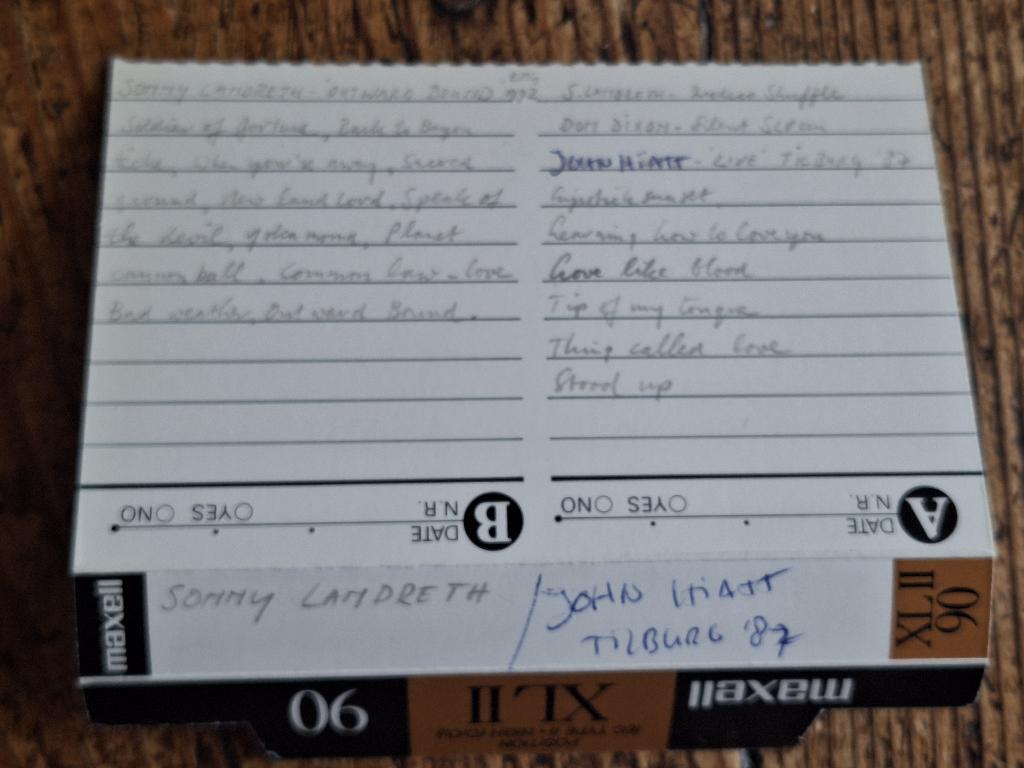 SONNY LANDRETH - 'OUTWARD BOUND' 1992
Soldier of fortune, Back to Bayou
Teche, When you're away, Sacred
ground, New Land Lord, Speak of
the devil, Yokamoma, Planet
cannon ball, Common Law-love
Bad weather, Outward Bound.
S. LANDRETH - Zydeco Shuffle
DON DIXON - Silent Screen
JOHN HIATT - 'LIVE' TILBURG '87
Lipstick sunset
Learning how to love you
Love like blood
Tip of my tongue
Thing called love
Stood up
B
DATE
N.R. YES NO
A
DATE
N.R. YES NO
maxell
SONNY LANDRETH / JOHN HIATT
TILBURG '87
XL II
90
90
XL II
maxell
POSITION